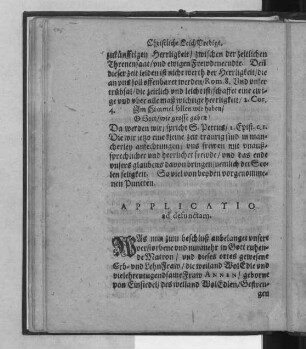 Christliche Leich-Predigt.
zukünfftigen Herrligkeit / zwischen der zeitlichen
Threnensaat / und ewigen Frewdenerndte. Weil
dieser zeit leiden ist nicht werth der Herrligkeit / die
an uns soll offenbaret werden / Rom. 8. Und unser
trübsal / die zeitlich und leicht ist / schaffet eine ewi-
ge und über alle maß wichtige herrligkeit / 2. Cor.
4.
Im Himmel sollen wir haben /
O Gott / wie grosse gaben /
Da werden wir / spricht S. Petrus / 1. Epist. c. 1.
Die wir jetzo eine kleine zeit traurig sind in man-
cherley anfechtungen / uns frewen mit unauß-
sprechlicher und herrlicher freude / und das ende
unsers glaubens davon bringen / nemlich der See-
len seligkeit. So viel von beyden vorgenomme-
nen Puncten.
APPLICATIO
ad defunctam.
WAs nun zum beschluß anbelanget unsere
verstorbene und nunmehr in Gott ruhen-
de Matron / und dieses ortes gewesene
Erb- und LehnFraw / die weiland WolEdle und
viel ehrntugendsame Fraw ANNEN / geborne
von Einsiedel / des weiland WolEdlen / Gestren-
gen